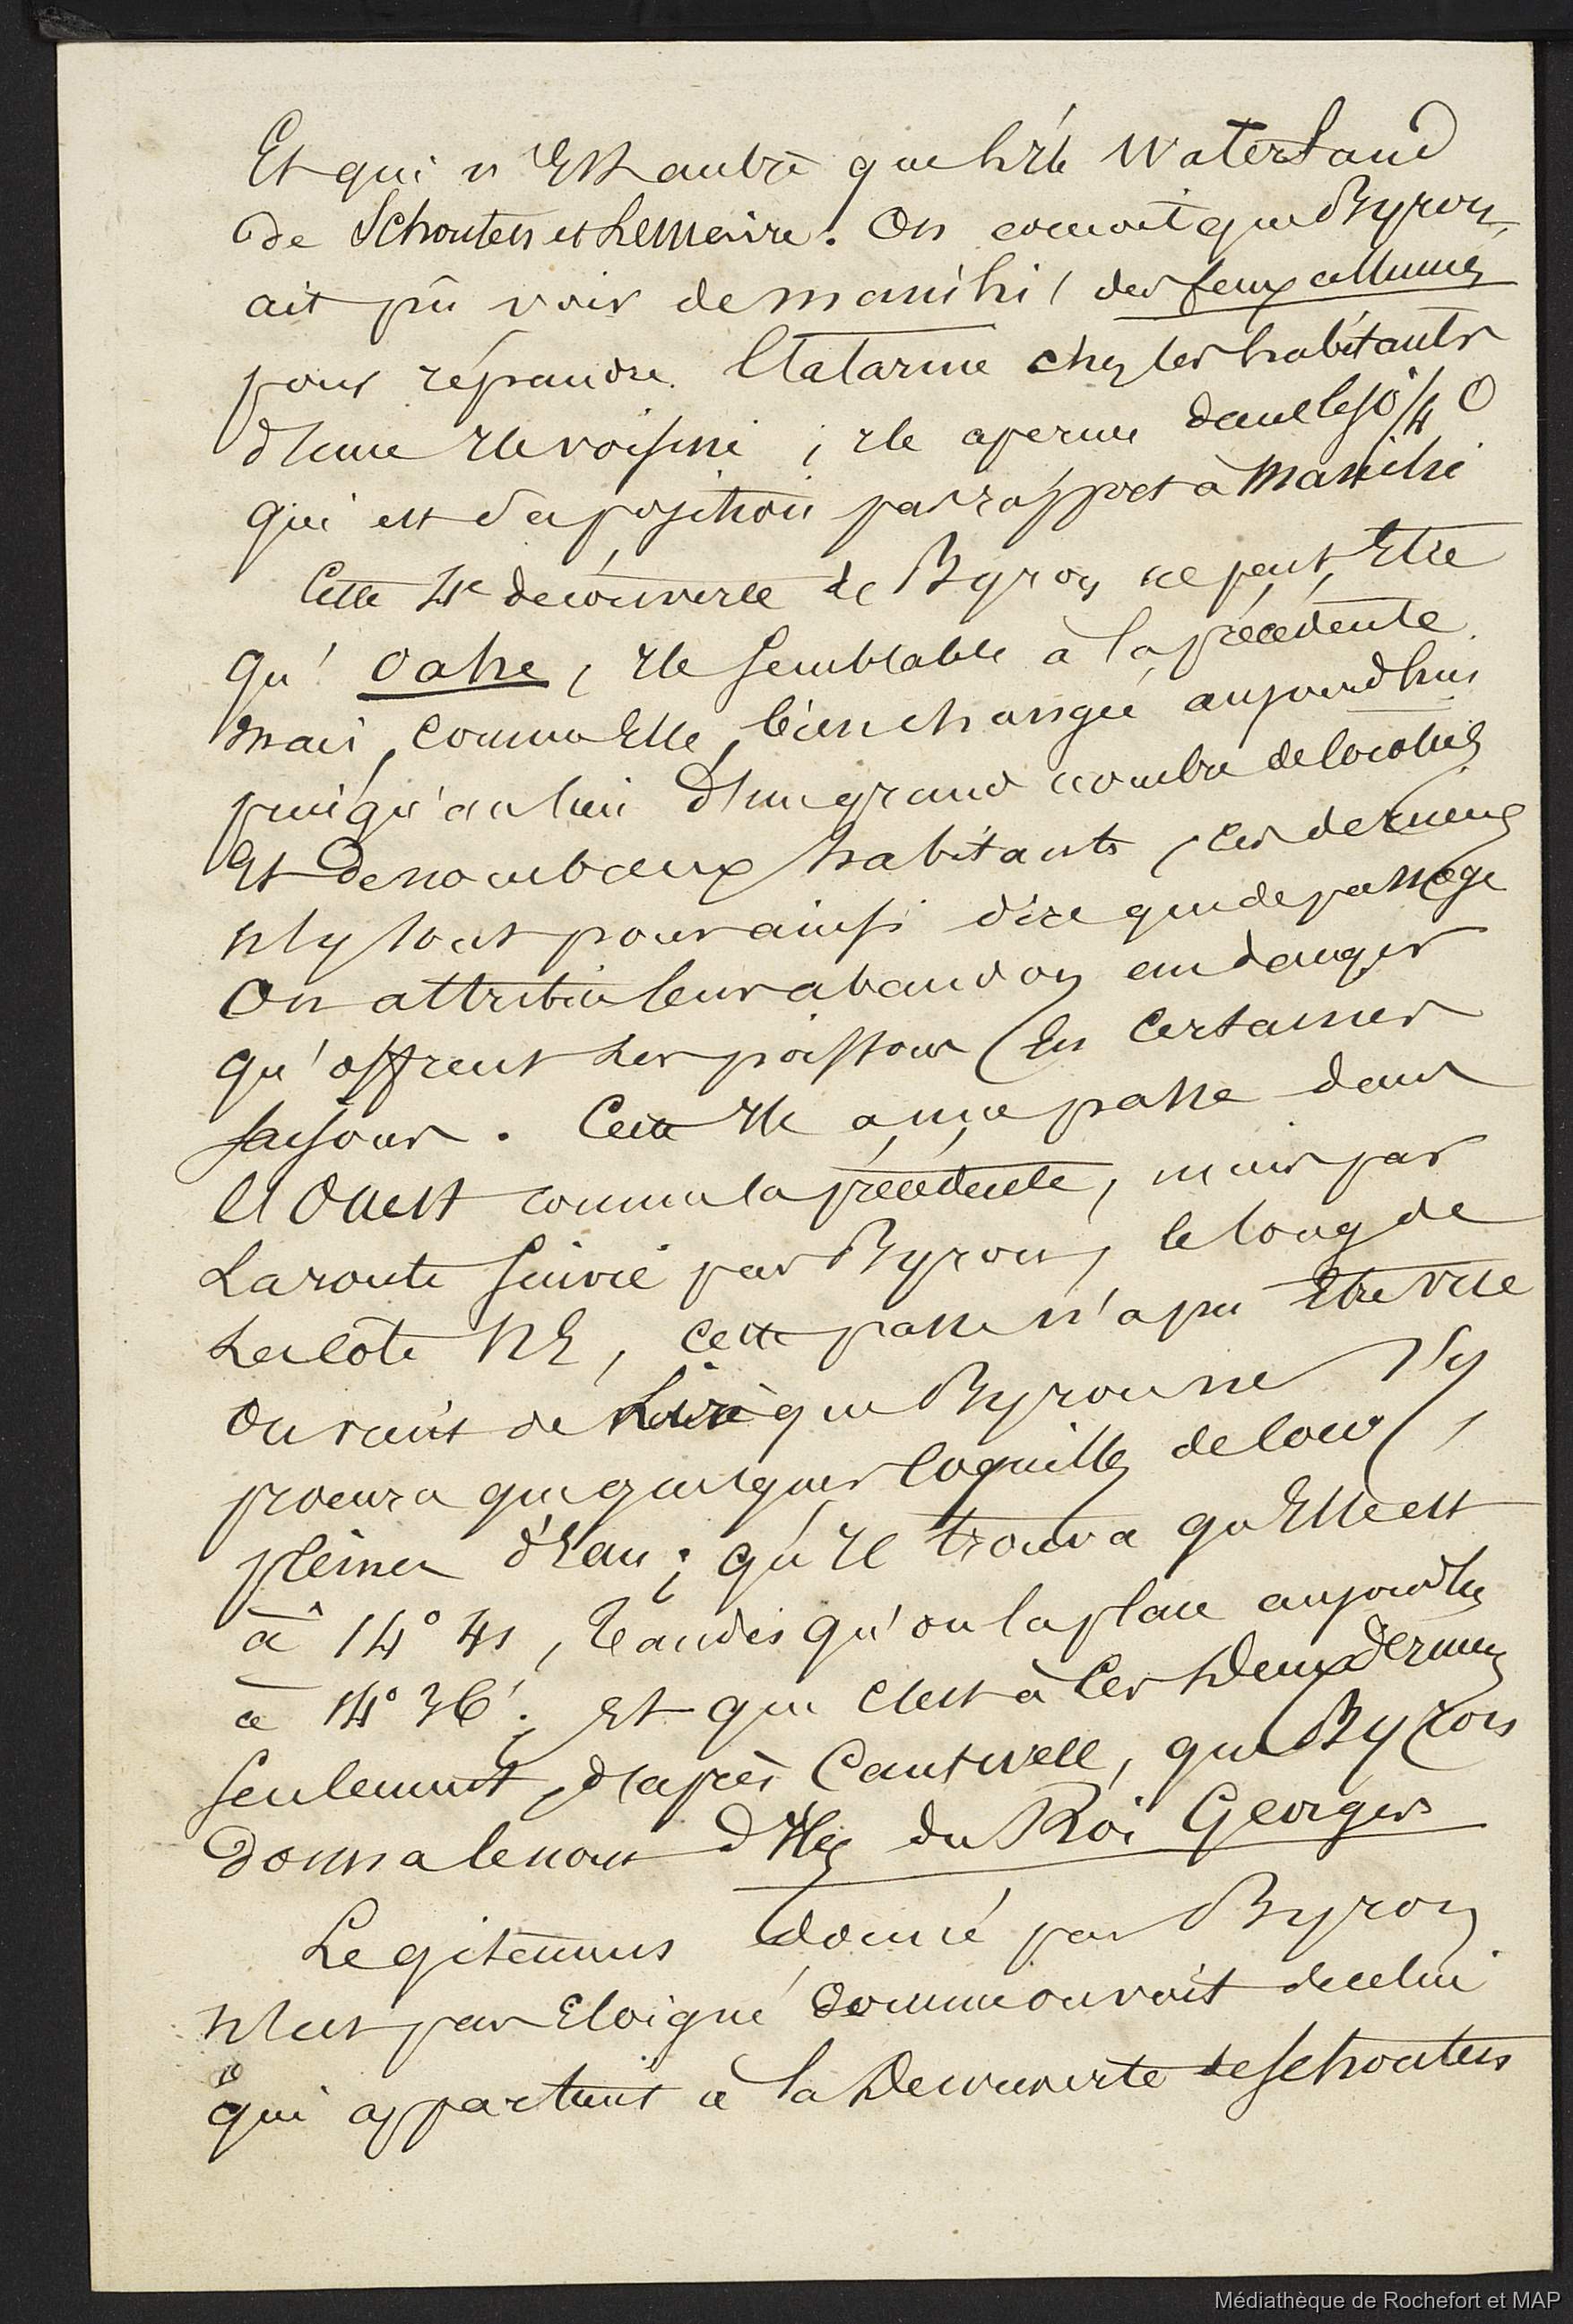 Et qui n'Est autre que l'île Waterland
de Schouten et Lemaire. On conçoit que Byron,
ait pû voir de manihi, des feux allumés
pour répandre l'alarme chez les habitants
d'une Ile voisine ; Ile aperçue dans le SO 1/4 O
qui est sa position par rapport à Manihi
Cette 4e découverte de Byron ne peut Etre
qu' Oahe, Ile semblable à la précédente
mais, comme Elle, bien changée aujourd'hui
puisqu'au lieu d'un grand nombre de locotiers
Et de nombreux habitants, ces derniers
n'y sont pour ainsi dire que de passage
On attribue leur abandon au danger
qu'offrent les poissons En Certaines
saisons. Cette Ile a une passe dans
l'Ouest comme la précédente, mais par
La route suivie par Byron, le long de
La côte NE, cette passe n'a pu Etre vue
On sait de que Byron ne s'y
procura que quelques Coquilles de Coco,
pleines d'Eau ; qu'Il trouva qu'Elle est
à 14° 41, tandis qu'on la place aujourd'hui
à 14° 36' ; Et que c'est à Ces Deux dernières
seulement, d'après Cantwell, que Byron
donna le nom d'Iles du Roi Georges
Le gisement donné par Byron
n'est pas Eloigné comme on voit de celui
qui appartient à la Découverte de Schouten
Médiathèque de Rochefort et MAP